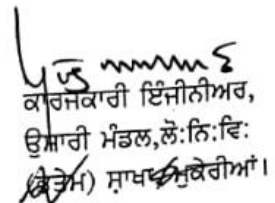 ਕਾਰਜਕਾਰੀ ਇੰਜੀਨੀਅਰ,
ਉਸਾਰੀ ਮੰਡਲ,ਲੋ:ਨਿ:ਵਿ:
ਸ਼ਾਖਾ ਮੁਕੇਰੀਆਂ।